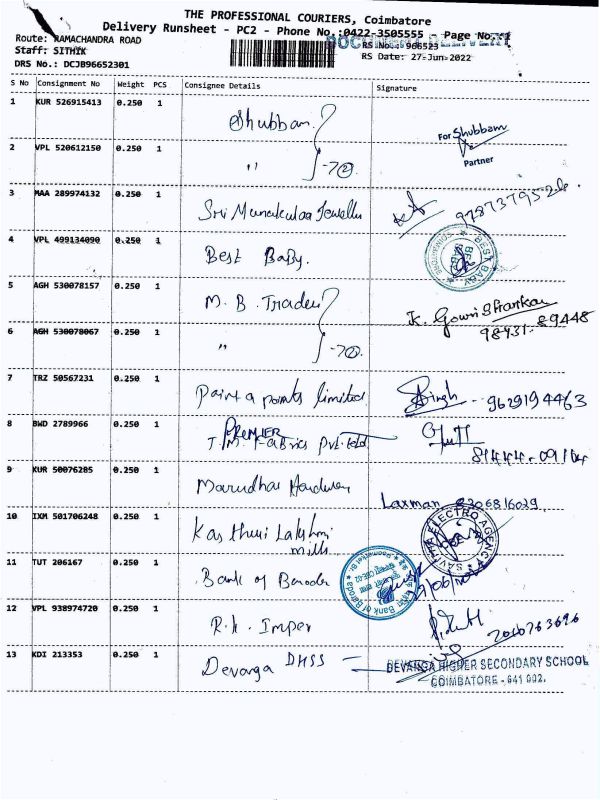 THE PROFESSIONAL COURIERS, Coimbatore
Delivery Runsheet - PC2 - Phone No.:0422-3505555 Page No.:1
Route: RAMACHANDRA ROAD
RS No.: 966523
Staff: SITHIK
RS Date: 27-Jun-2022
DRS No.: DCJB96652301
S No Consignment No Weight PCS Consignee Details Signature
1 KUR 526915413 0.250 1 Shubbam
For Shubbam
Partner
2 VPL 520612150 0.250 1 " - 72.
3 MAA 289974132 0.250 1 Sri
4 VPL 499134090 0.250 1 Best Baby.
BEST BABY
5 AGH 530078157 0.250 1 M. B. Trader
K. Gowri Shankar
98431-89448
6 AGH 530078067 0.250 1 "
7 TRZ 50567231 0.250 1 Paint a points limited Singh 9629194463
8 BWD 2789966 0.250 1 PREMIER
Fabrics Pvt Ltd
9 KUR 50076285 0.250 1 Marudhar Hardware Laxman
10 IXM 501706248 0.250 1 Kasthuri Lakshmi
mills
11 TUT 206167 0.250 1 Bank of Baroda
Bank of Baroda
12 VPL 938974720 0.250 1 R.K. Impex
13 KDI 213353 0.250 1 Devanga DHSS
DEVANGA HIGHER SECONDARY SCHOOL
COIMBATORE - 641 002.